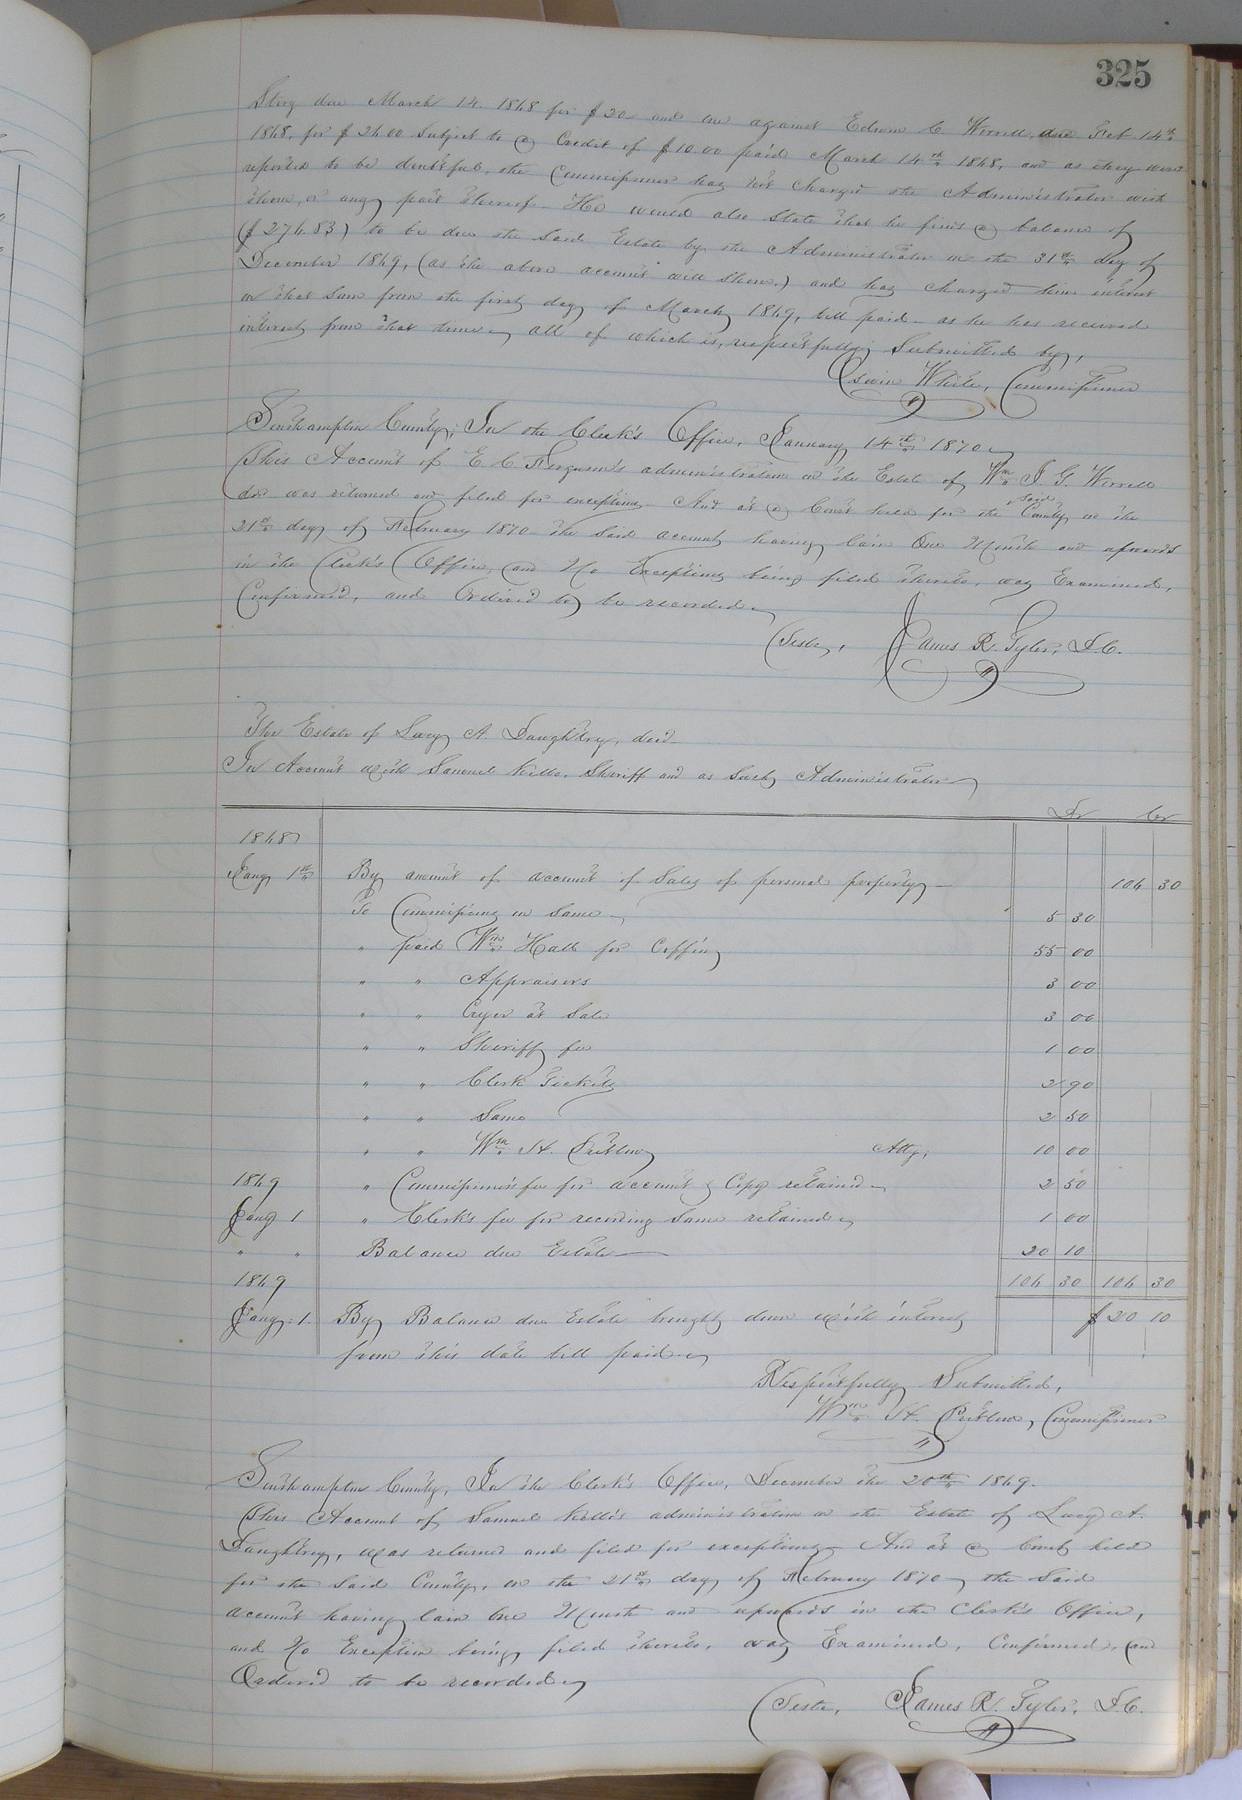 325
Story due March 14. 1868 for $20 and one against Edwin C Worrell, due Feb 14th
1868, for $26.00 Subject to a Credit of $10.00 paid March 14th 1868, and as they were
reported to be doubtful, the Commissioner has not charged the Administrator with
them, or any part thereof. He would also State that he finds a balance of
($276.83) to be due the said Estate by the Administrator on the 31st day of
December 1869, (as the above account will show.) and has charged him interest
on that Sum from the first day of March 1869, till paid - as he has received
interest from that time, all of which is, respectfully Submitted by,
White, Commissioner
Southampton County, In the Clerk's Office, January 14th 1870
This Account of E. C. Ferguson's administration on the Estate of Wm J. G. Worrell
dec was returned and filed for exceptions. And at a Court held for the said County on the
21st day of February 1870 the said account having lain One Month and upwards
in the Clerk's Office, and No Exceptions being filed thereto, was Examined,
Confirmed, and Ordered to be recorded
Teste, James R. Tyler, D.C.
The Estate of Lucy A. Daughtry, decd
In Account with Samuel Kello, Sheriff and as Such Administrator
Dr Cr
1868
Jany 1st By amount of account of Sales of personal property 106 30
To Commissions on Same 5 30
" paid Wm Hall for Coffin 55 00
" " Appraisers 3 00
" " Cryer at Sale 3 00
" " Sheriff fee 1 00
" " Clerk Tickets 2 90
" " Same 2 50
" " Wm H. Pretlow Atty, 10 00
1869 " Commissioner's fee for account & Copy retained 2 50
Jany 1 " Clerk's fee for recording Same retained 1 00
" " Balance due Estate 20 10
1869 106 30 106 30
Jany. 1. By Balance due Estate brought down with interest $20 10
from this date till paid
Respectfully Submitted,
Wm H. Pretlow, Commissioner
Southampton County, In the Clerk's Office, December the 20th 1869.
This Account of Samuel Kello's administration on the Estate of Lucy A.
Daughtry, was returned and filed for exceptions And at a Court held
for the said County, on the 21st day of February 1870, the said
account having lain One Month and upwards in the Clerk's Office,
and No Exception being filed thereto, was Examined, Confirmed, and
Ordered to be recorded
Teste, James R. Tyler, D.C.